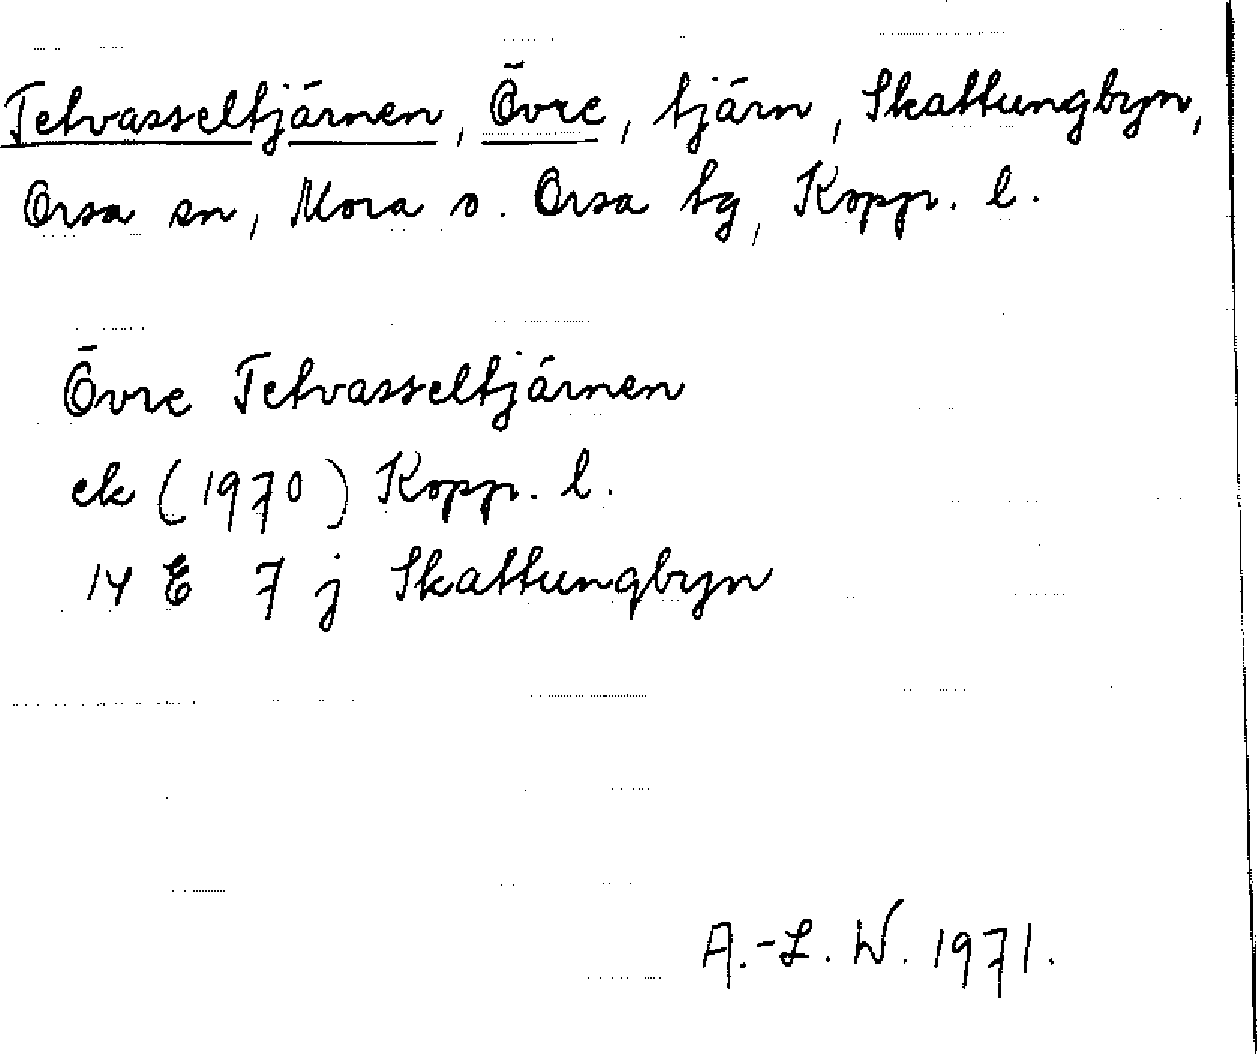 Tetvasseltjärnen, Övre, tjärn, Skattungbyn,
Orsa sn, Mora o. Orsa tg, Kopp. l.
Övre Tetvasseltjärnen
ek (1970) Kopp. l.
14 E 7 j Skattungbyn
A.-L. W. 1971.